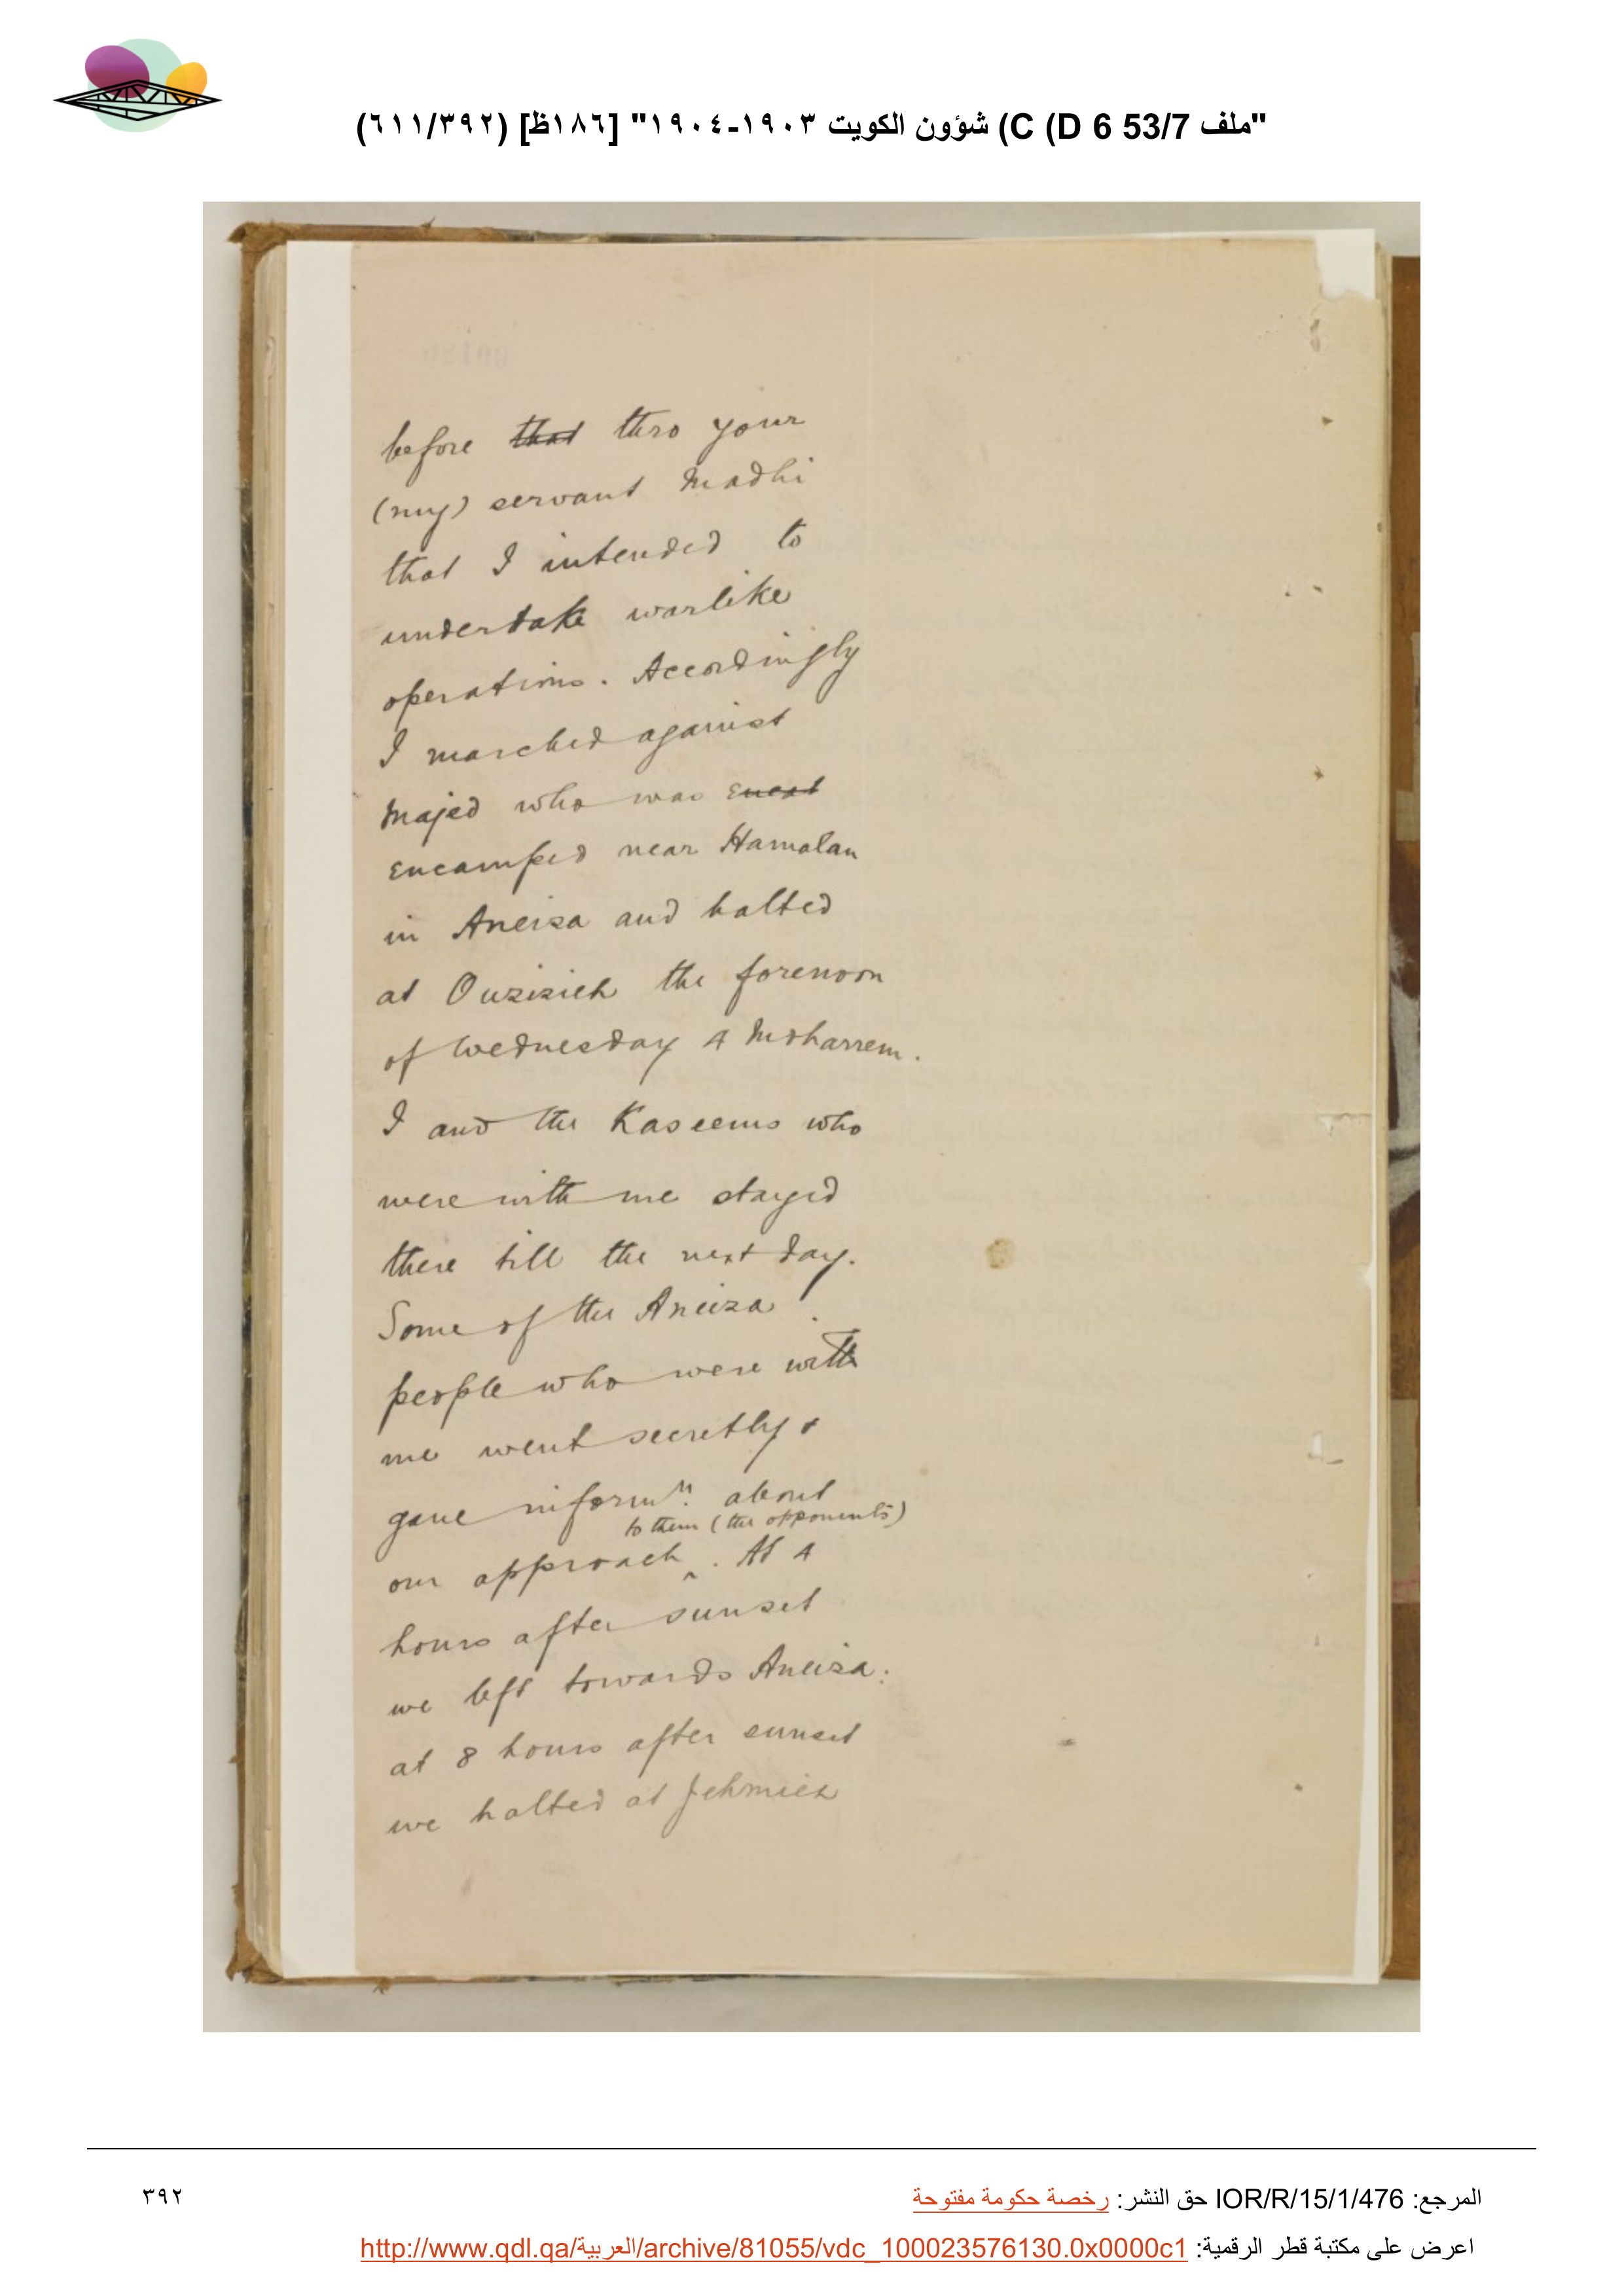 "ملف 53/7 D 6) C) شؤون الكويت ١٩٠٣-١٩٠٤" [١٨٦ظ] (٦١١/٣٩٢)
before that thro your
(my) servant Madhi
that I intended to
undertake warlike
operations. Accordingly
I marched against
Majed who was encat
encamped near Hamalan
in Aneiza and halted
at Ouzizieh the forenoon
of Wednesday 4 Moharrem.
I and the Kaseems who
were with me stayed
there till the next day.
Some of the Aneiza
people who were with
me went secretly &
gave informn. about
to them (the opponents)
our approach ^. At 4
hours after sunset
we left towards Aneiza.
at 8 hours after sunset
we halted at Jehmieh
المرجع: IOR/R/15/1/476 حق النشر: رخصة حكومة مفتوحة
٣٩٢
اعرض على مكتبة قطر الرقمية: http://www.qdl.qa/العربية/archive/81055/vdc_100023576130.0x0000c1